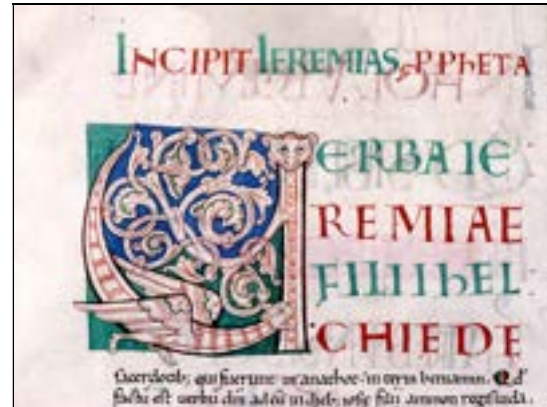 INCIPIT IEREMIAS, PPhETA
VERBA IE
REMIAE
FILII hEL
CHIE DE
sacerdotib; qui fuerunt in anathot in terra beniamin. Qd
factū est verbū dn̄i ad eū in dieb; iosie filii ammon regis iuda.